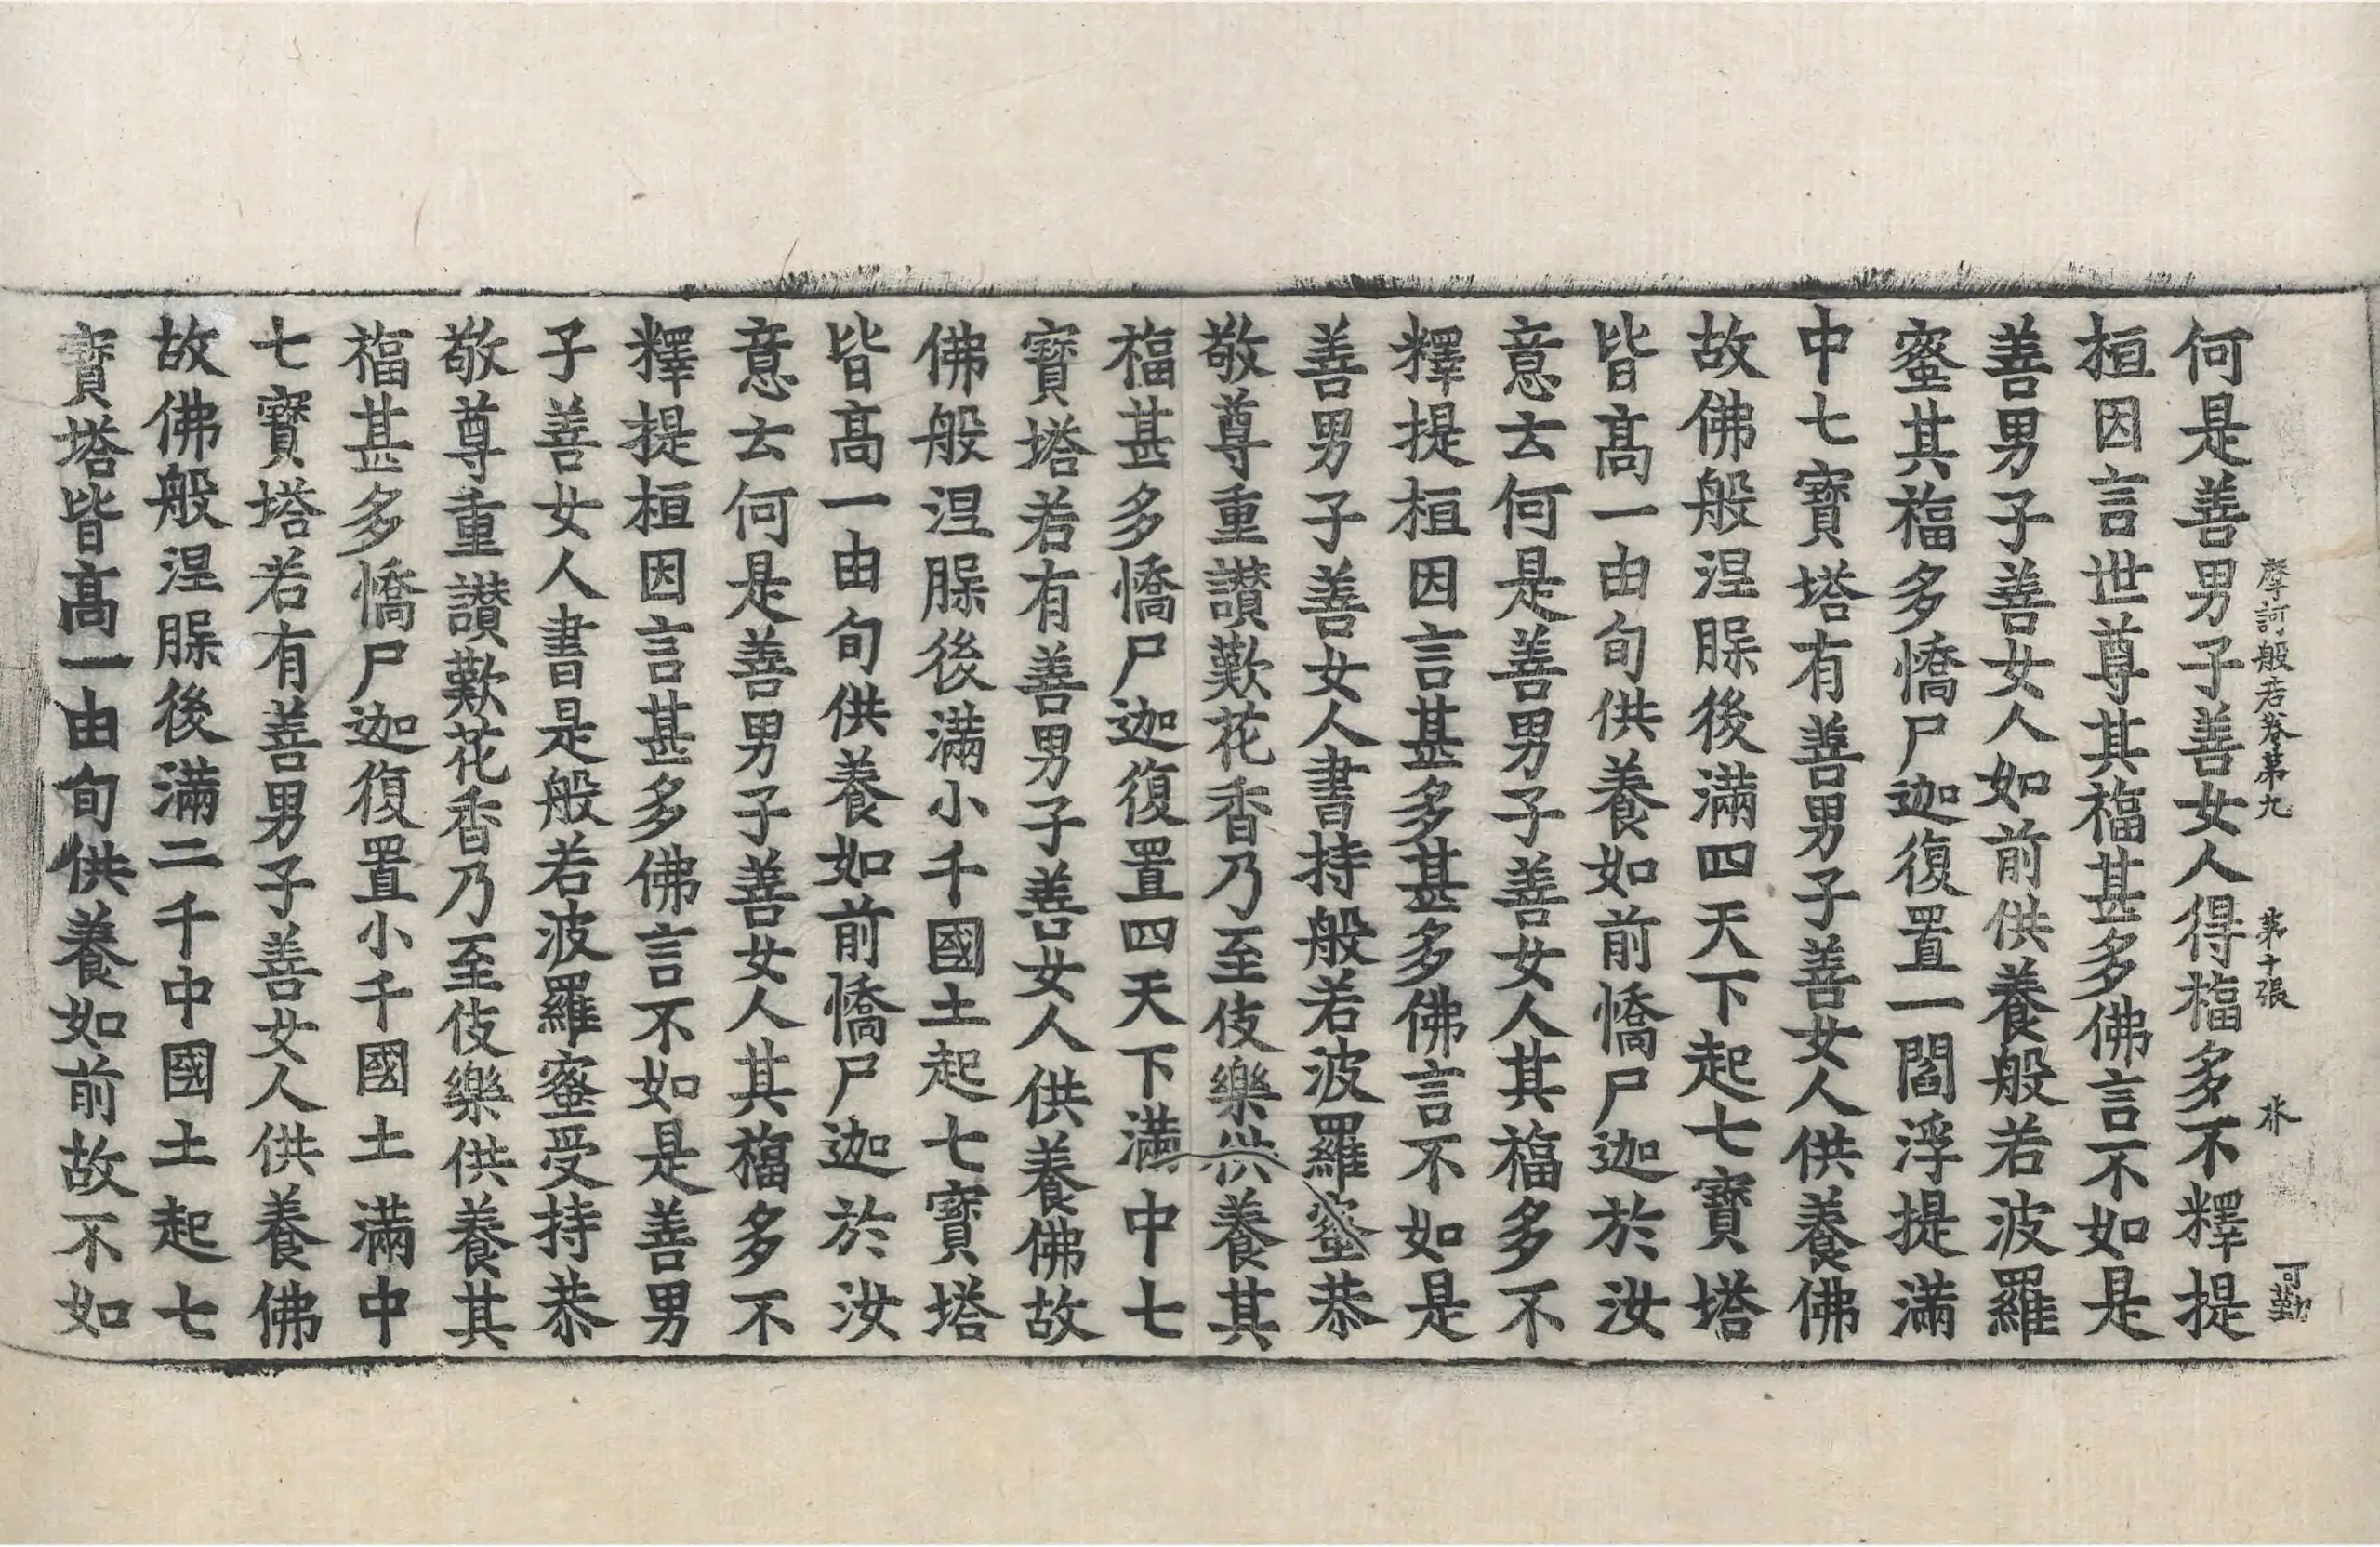 摩訶般若卷第九 第十張 水 可勤
何是善男子善女人得福多不釋提
桓因言世尊其福甚多佛言不如是
善男子善女人如前供養般若波羅
蜜其福多憍尸迦復置一閻浮提滿
中七寶塔有善男子善女人供養佛
故佛般涅脲後滿四天下起七寶塔
皆高一由旬供養如前憍尸迦於汝
意云何是善男子善女人其福多不
釋提桓因言甚多甚多佛言不如是
善男子善女人書持般若波羅蜜恭
敬尊重讚歎花香乃至伎樂供養其
福甚多憍尸迦復置四天下滿中七
寶塔若有善男子善女人供養佛故
佛般涅脲後滿小千國土起七寶塔
皆高一由旬供養如前憍尸迦於汝
意云何是善男子善女人其福多不
釋提桓因言甚多佛言不如是善男
子善女人書是般若波羅蜜受持恭
敬尊重讚歎花香乃至伎樂供養其
福甚多憍尸迦復置小千國土滿中
七寶塔若有善男子善女人供養佛
故佛般涅脲後滿二千中國土起七
寶塔皆高一由旬供養如前故不如